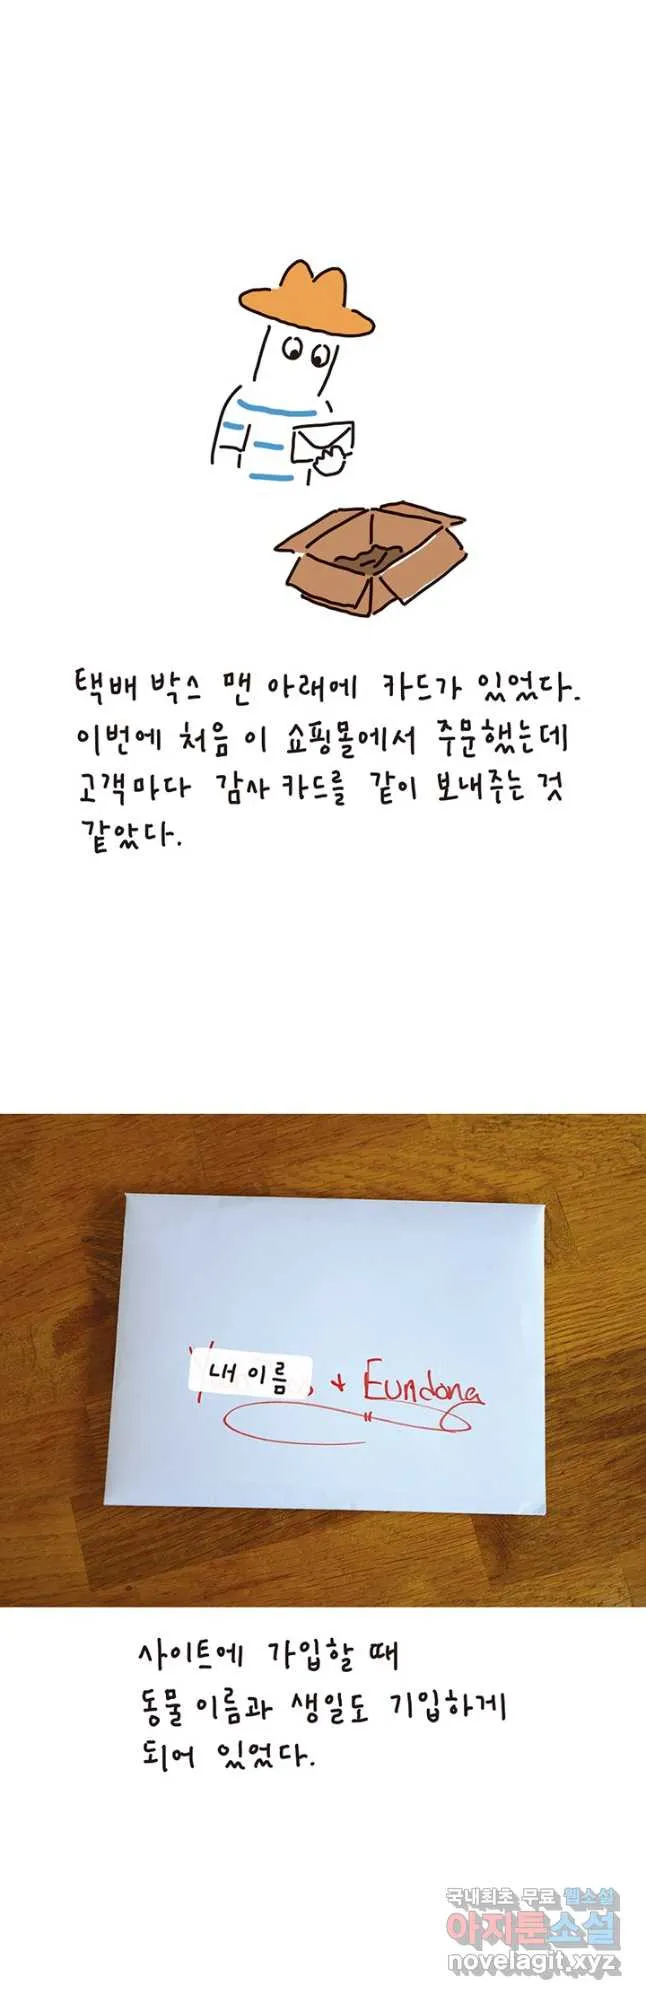 택배 박스 맨 아래에 카드가 있었다.
이번에 처음 이 쇼핑몰에서 주문했는데
고객마다 감사 카드를 같이 보내주는 것
같았다.
내 이름, + Eundong
사이트에 가입할 때
동물 이름과 생일도 기입하게
되어 있었다.
국내최초 무료 웹소설
아지툰소설
novelagit.xyz